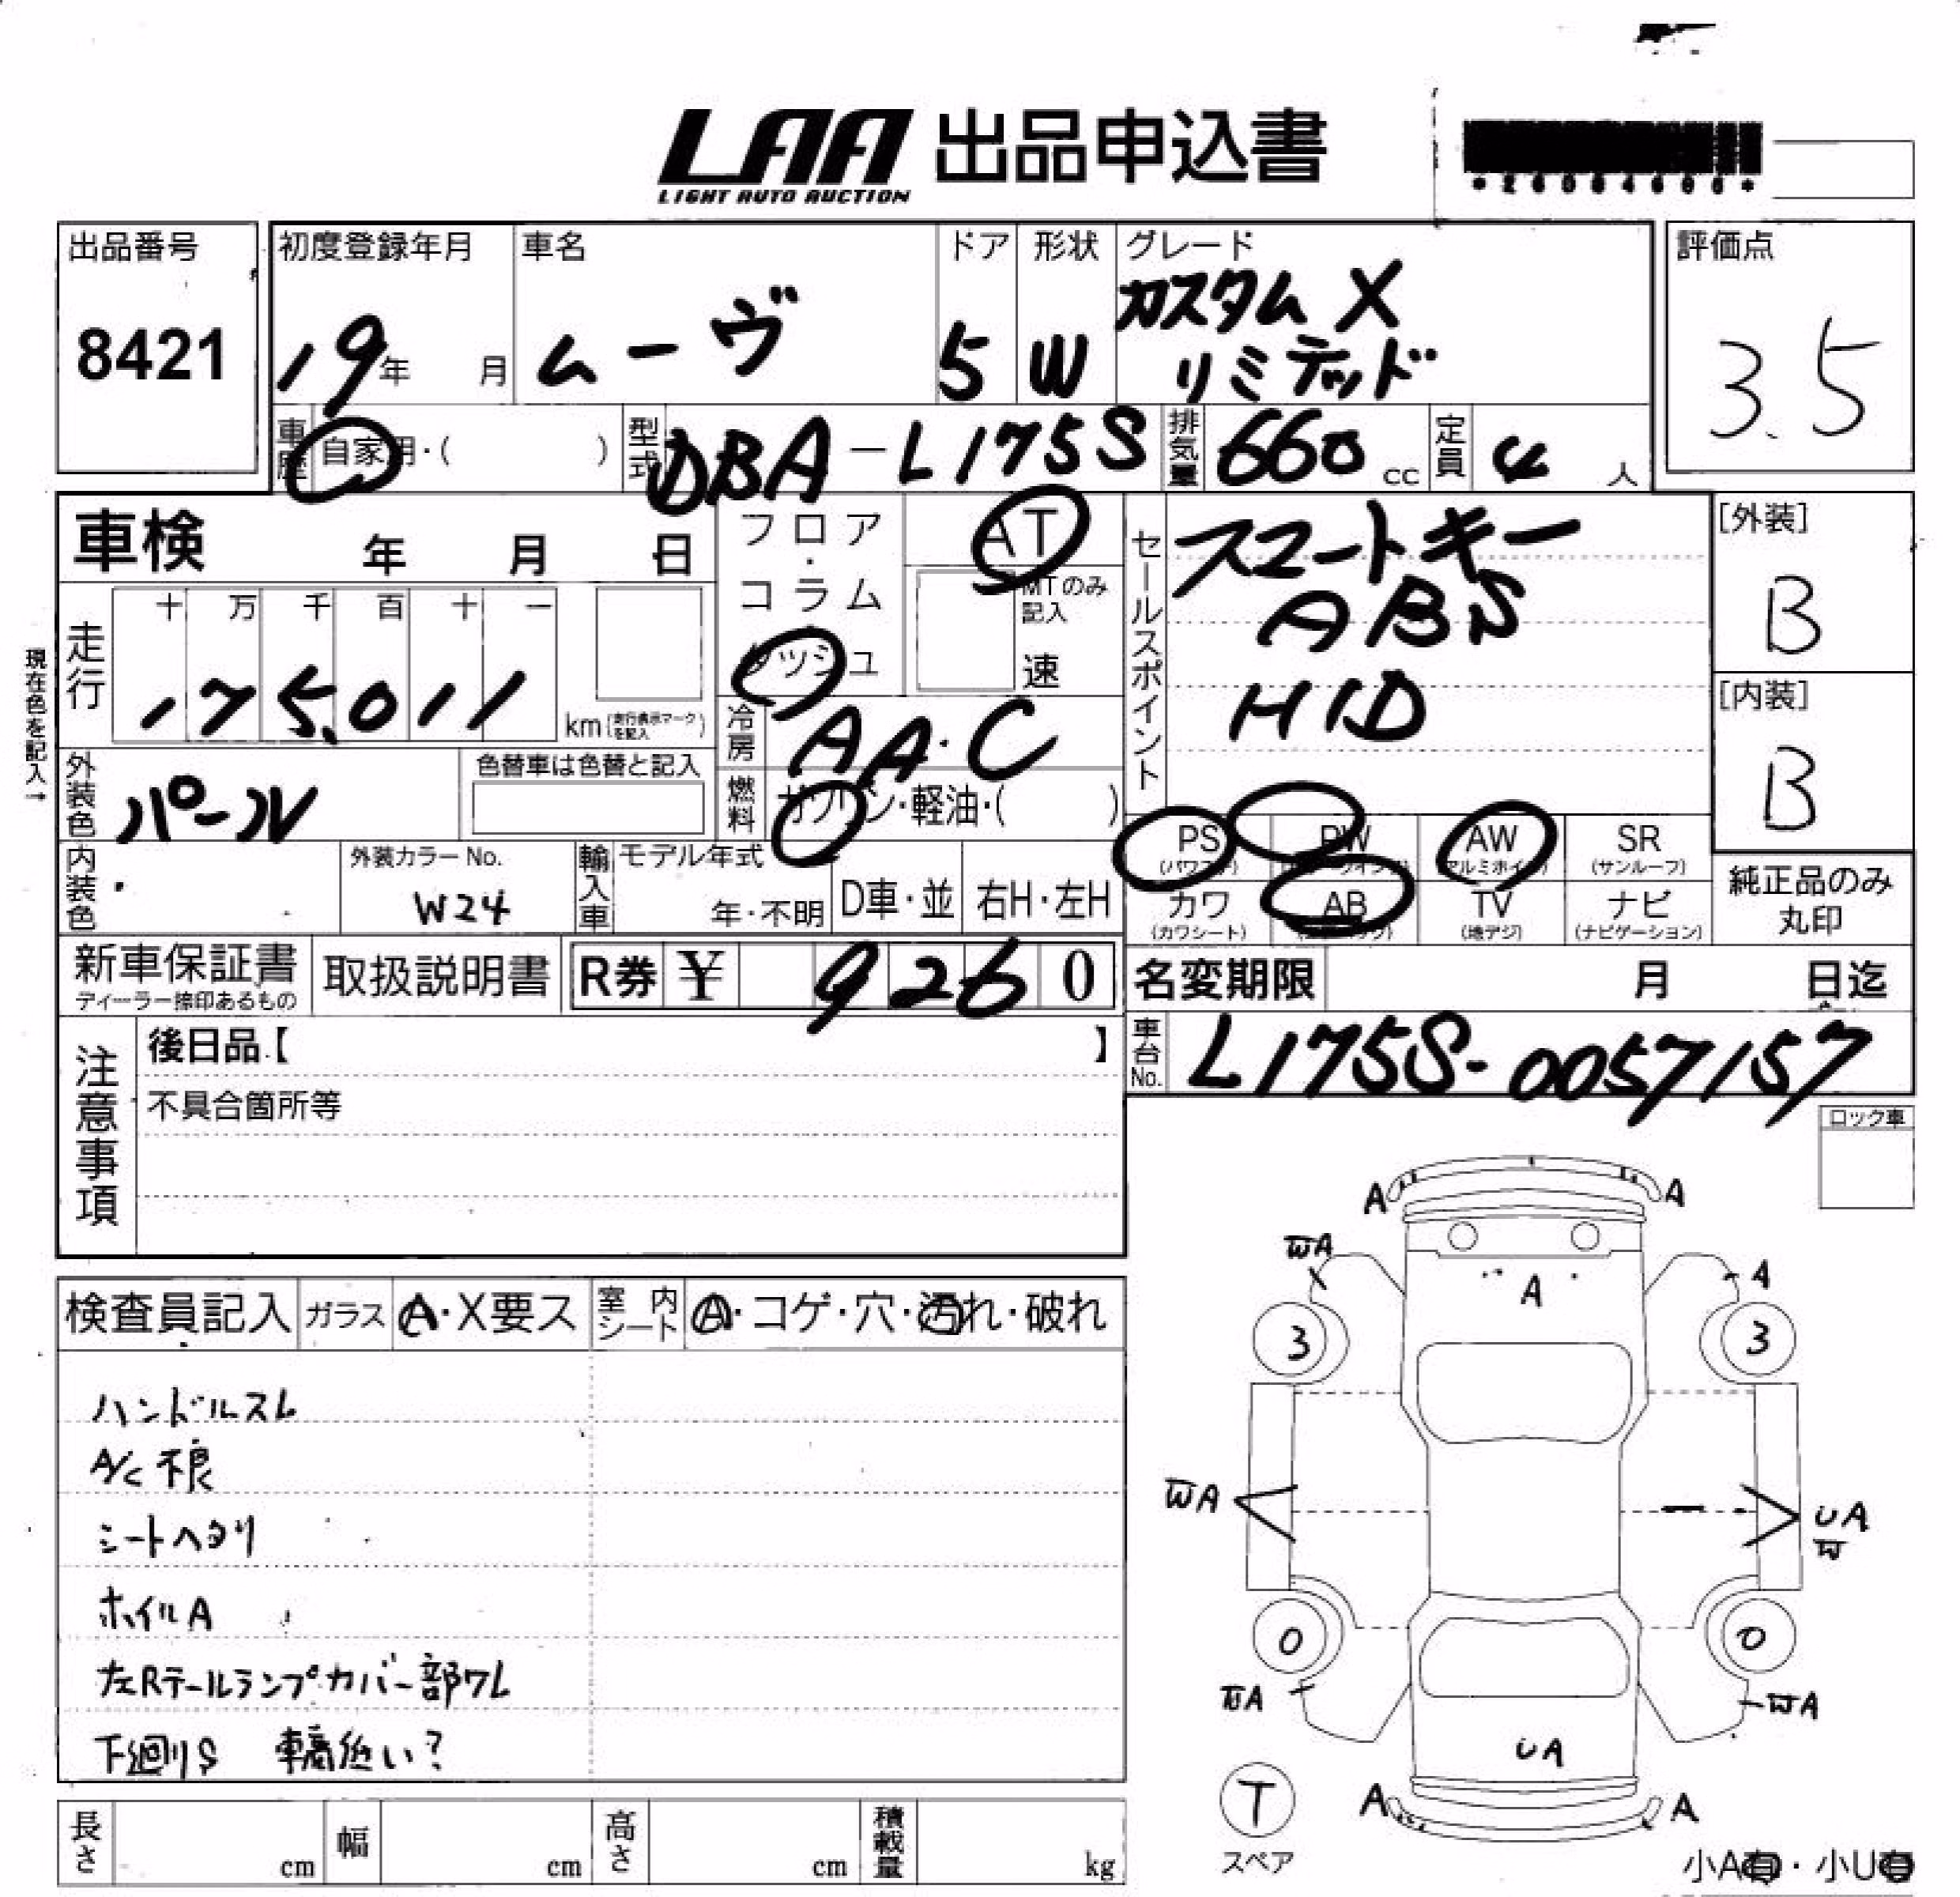 LAA 出品申込書
LIGHT AUTO AUCTION
出品番号
8421
初度登録年月
19年 月
車名
ムーヴ
ドア
5
形状
W
グレード
カスタムX
リミテッド
評価点
3.5
車歴
自家用・( )
型式
DBA-L175S
排気量
660 cc
定員
4 人
車検 年 月 日
フロア・コラム
ダッシュ
AT
MTのみ記入
速
セールスポイント
スマートキー
ABS
HID
[外装]
B
[内装]
B
現在色を記入→
走行
十 万 千 百 十 一
175,011 km(走行表示マークを記入)
冷房
AA・C
燃料
ガソリン・軽油・( )
外装色
パール
色替車は色替と記入
内装色
外装カラーNo.
W24
輸入車
モデル年式
年・不明
D車・並
右H・左H
PS (パワステ)
PW
AW (アルミホイル)
SR (サンルーフ)
カワ (カワシート)
AB
TV (地デジ)
ナビ (ナビゲーション)
純正品のみ丸印
新車保証書
ディーラー捺印あるもの
取扱説明書
R券 ¥ 9260
名変期限 月 日迄
車台No.
L175S-0057157
注意事項
後日品【 】
不具合箇所等
ロック車
検査員記入
ガラス
A・X要ス
室内シート
A・コゲ・穴・汚れ・破れ
ハンドルスレ
A/C不良
シートヘタリ
ホイルA
左Rテールランプカバー部ワレ
下廻りS
A A
WA A
A
3 3
WA UA
W
0 0
WA
UA
T
スペア
A A
小A有・小U有
長さ cm
幅 cm
高さ cm
積載量 kg